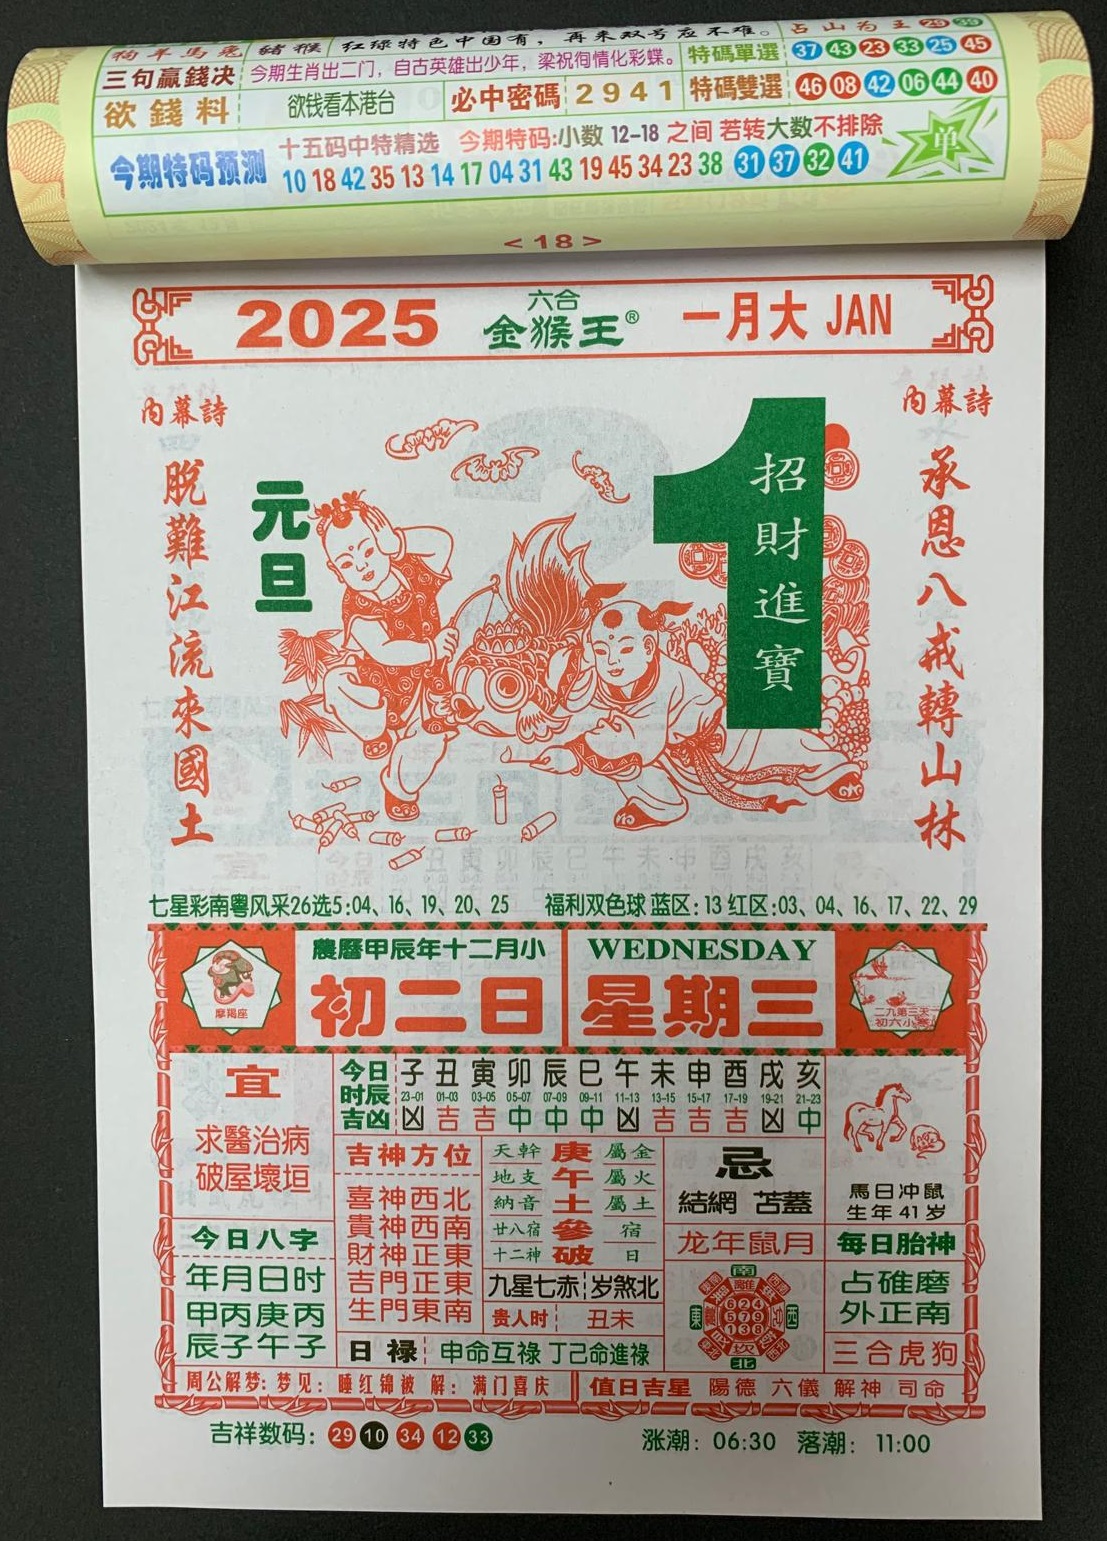 狗羊馬兔 豬猴 红绿特色中国有，再来双号应不难。 占山为王 29 39
三句赢錢决 今期生肖出二门，自古英雄出少年，梁祝徇情化彩蝶。 特碼單選 37 43 23 33 25 45
欲錢料 欲钱看本港台 必中密碼 2941 特碼雙選 46 08 42 06 44 40
今期特码预测 十五码中特精选 今期特码:小数 12-18 之间 若转大数不排除 单
10 18 42 35 13 14 17 04 31 43 19 45 34 23 38 31 37 32 41
<18>
2025 六合 金猴王® 一月大 JAN
內幕詩
承恩八戒轉山林
內幕詩
脫難江流來國土
元旦
1
招財進寶
七星彩南粤风采26选5:04、16、19、20、25 福利双色球 蓝区:13 红区:03、04、16、17、22、29
摩羯座
農曆甲辰年十二月小
初二日
WEDNESDAY
星期三
二九第三天
初六小寒
宜
求醫治病
破屋壞垣
今日时辰吉凶
子 丑 寅 卯 辰 巳 午 未 申 酉 戌 亥
23-01 01-03 03-05 05-07 07-09 09-11 11-13 13-15 15-17 17-19 19-21 21-23
凶 吉 吉 中 中 中 凶 吉 吉 吉 凶 中
吉神方位
喜神西北
貴神西南
財神正東
吉門正東
生門東南
天幹 庚 屬金
地支 午 屬火
納音 土 屬土
廿八宿 參 宿
十二神 破 日
九星七赤 岁煞北
贵人时 丑未
日禄 申命互祿 丁己命進祿
忌
結網 苫蓋
龙年鼠月
南
東
西
北
離
坎
624
579
138
馬日冲鼠
生年41岁
每日胎神
占碓磨
外正南
三合虎狗
今日八字
年月日时
甲丙庚丙
辰子午子
周公解梦:梦见:睡红锦被 解:满门喜庆 值日吉星 陽德 六儀 解神 司命
吉祥数码: 29 10 34 12 33 涨潮:06:30 落潮:11:00